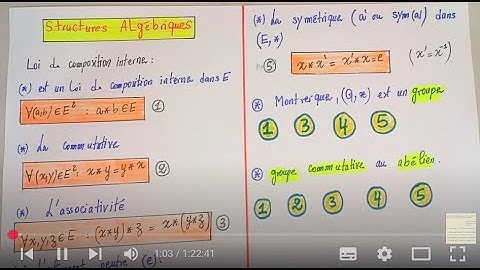 Structures Algébriques
Loi de composition interne :
(*) est un Loi de composition interne dans E
∀(a,b)∈E² : a*b∈E ①
(*) La commutative
∀(x,y)∈E² : x*y=y*x ②
(*) L'associativité
∀x,y,z∈E : (x*y)*z = x*(y*z) ③
neutre (e) :
(*) La symétrique (a' ou sym(a)) dans
(E,*)
⑤ x*x' = x'*x=e (x'=x⁻¹)
(*) Montrer que, (G,*) est un groupe
① ③ ④ ⑤
(*) groupe commutative au abélien.
① ② ③ ④ ⑤
1:03 / 1:22:41